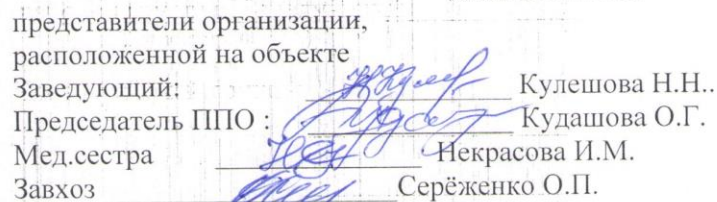 представители организации,
расположенной на объекте
Заведующий: Кулешова Н.Н..
Председатель ППО : Кудашова О.Г.
Мед.сестра Некрасова И.М.
Завхоз Серёженко О.П.